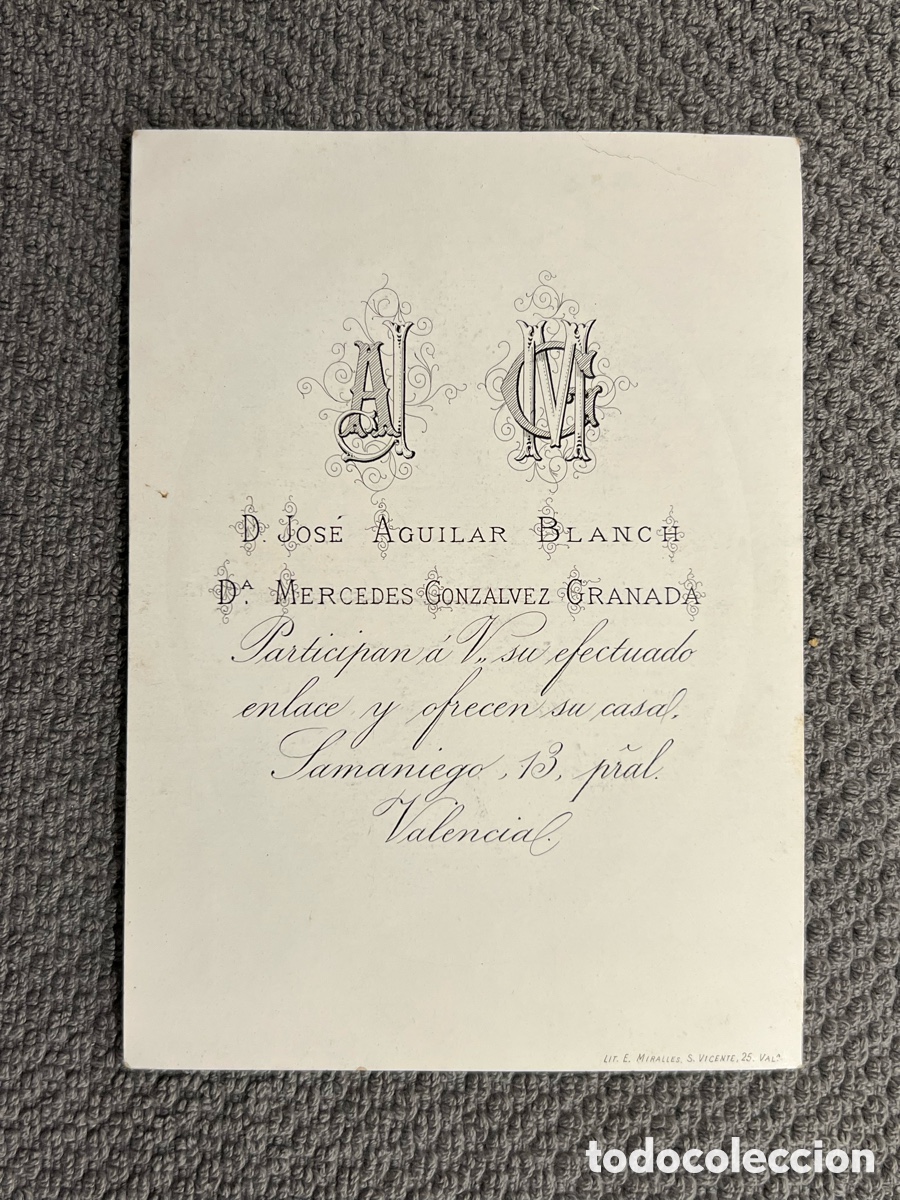 AJ MG
D. José Aguilar Blanch
Dª. Mercedes Gonzalvez Granada
Participan á V,, su efectuado
enlace y ofrecen su casa,
Samaniego, 13, pñal.
Valencia.
Lit. E. Miralles, S. Vicente, 25. Valª
todocoleccion